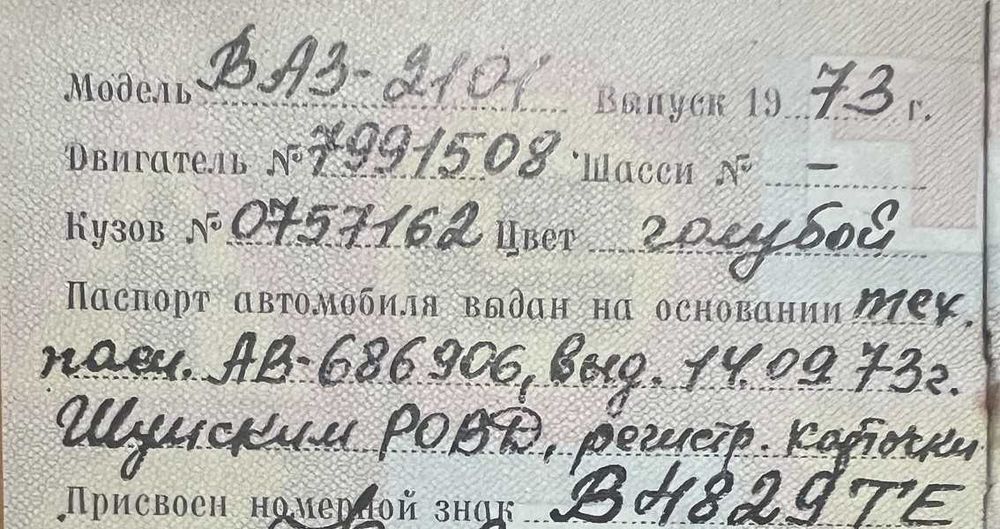 Модель ВАЗ-2101 Выпуск 1973 г.
Двигатель № 7991508 Шасси № -
Кузов № 0757162 Цвет голубой
Паспорт автомобиля выдан на основании тех.
пасп. АВ-686906, выд. 14.09.73г.
Шумским РОВД, регистр. карточки
Присвоен номерной знак В4829ТЕ